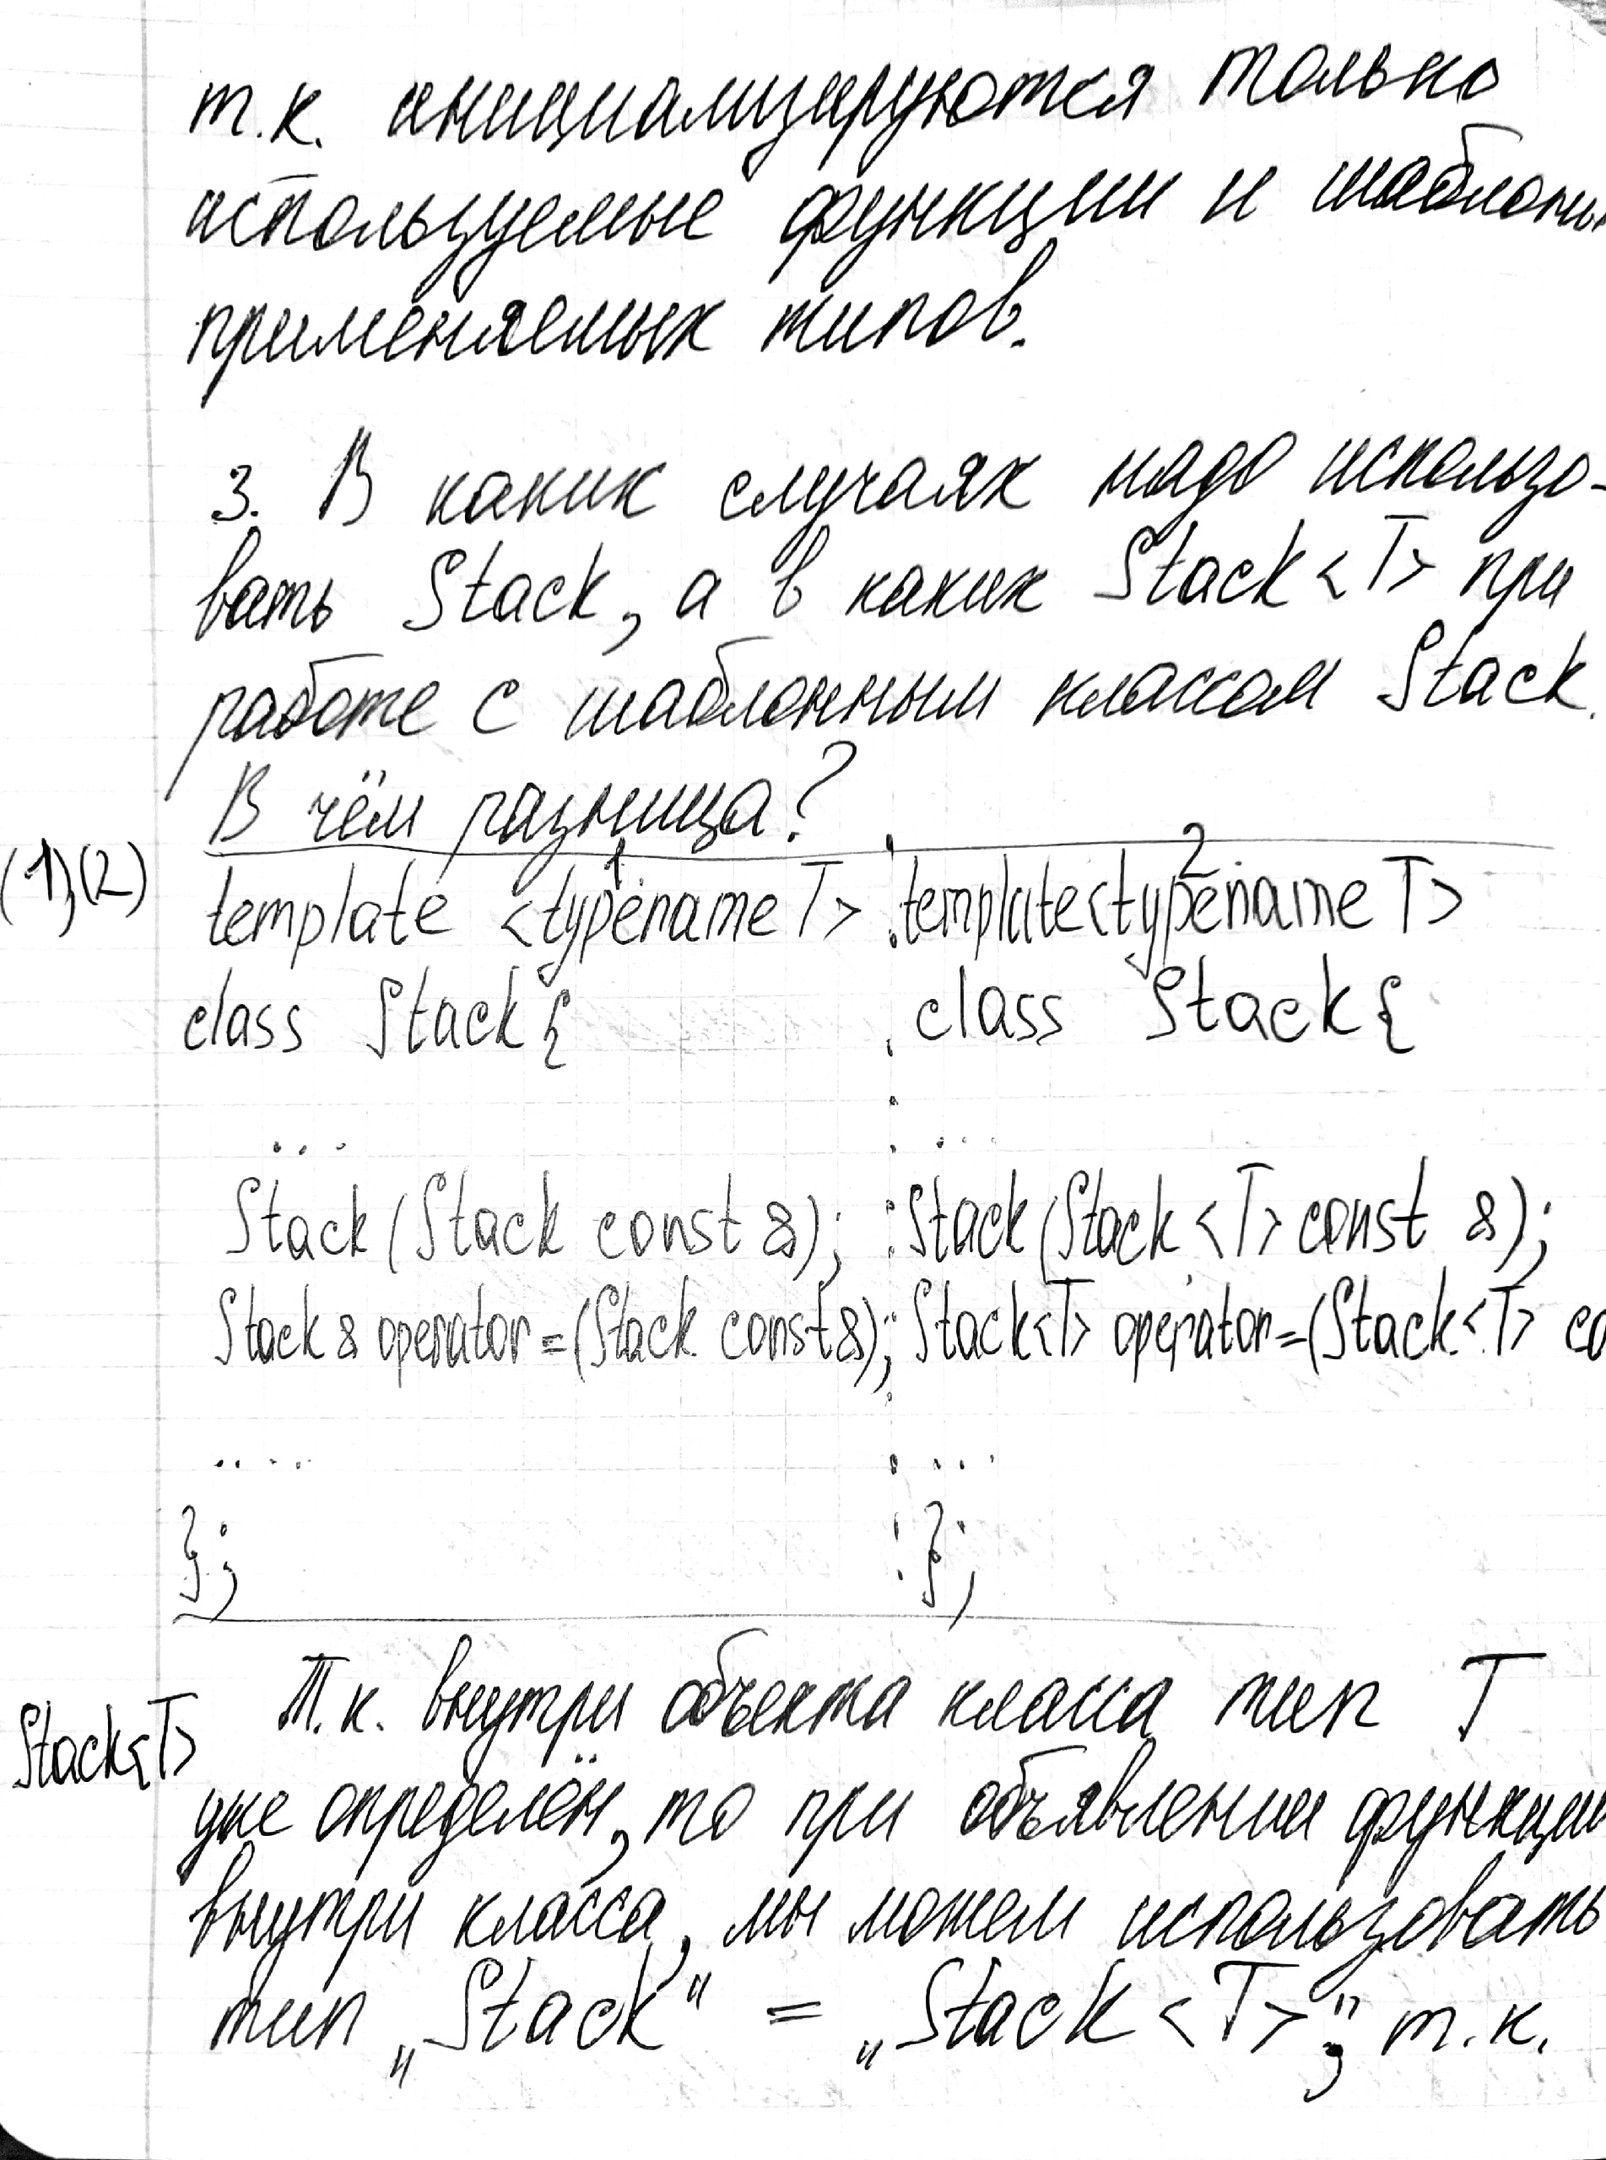 т.к. инициализируются только
используемые функции и шаблоны
применяемых типов.
3. В каких случаях надо использо-
вать Stack, а в каких Stack<T> при
работе с шаблонным классом Stack.
В чём разница?
(1),(2)
1 2
template <typename T> template<typename T>
class Stack{ class Stack{
... ...
Stack(Stack const &); Stack(Stack<T> const &);
Stack & operator=(Stack const&); Stack<T> operator=(Stack<T> co
.... ....
}; };
Т.к. внутри объекта класса тип T
Stack<T>
уже определён, то при объявлении функции
внутри класса, мы можем использовать
тип „Stack“ = „Stack<T>“, т.к.